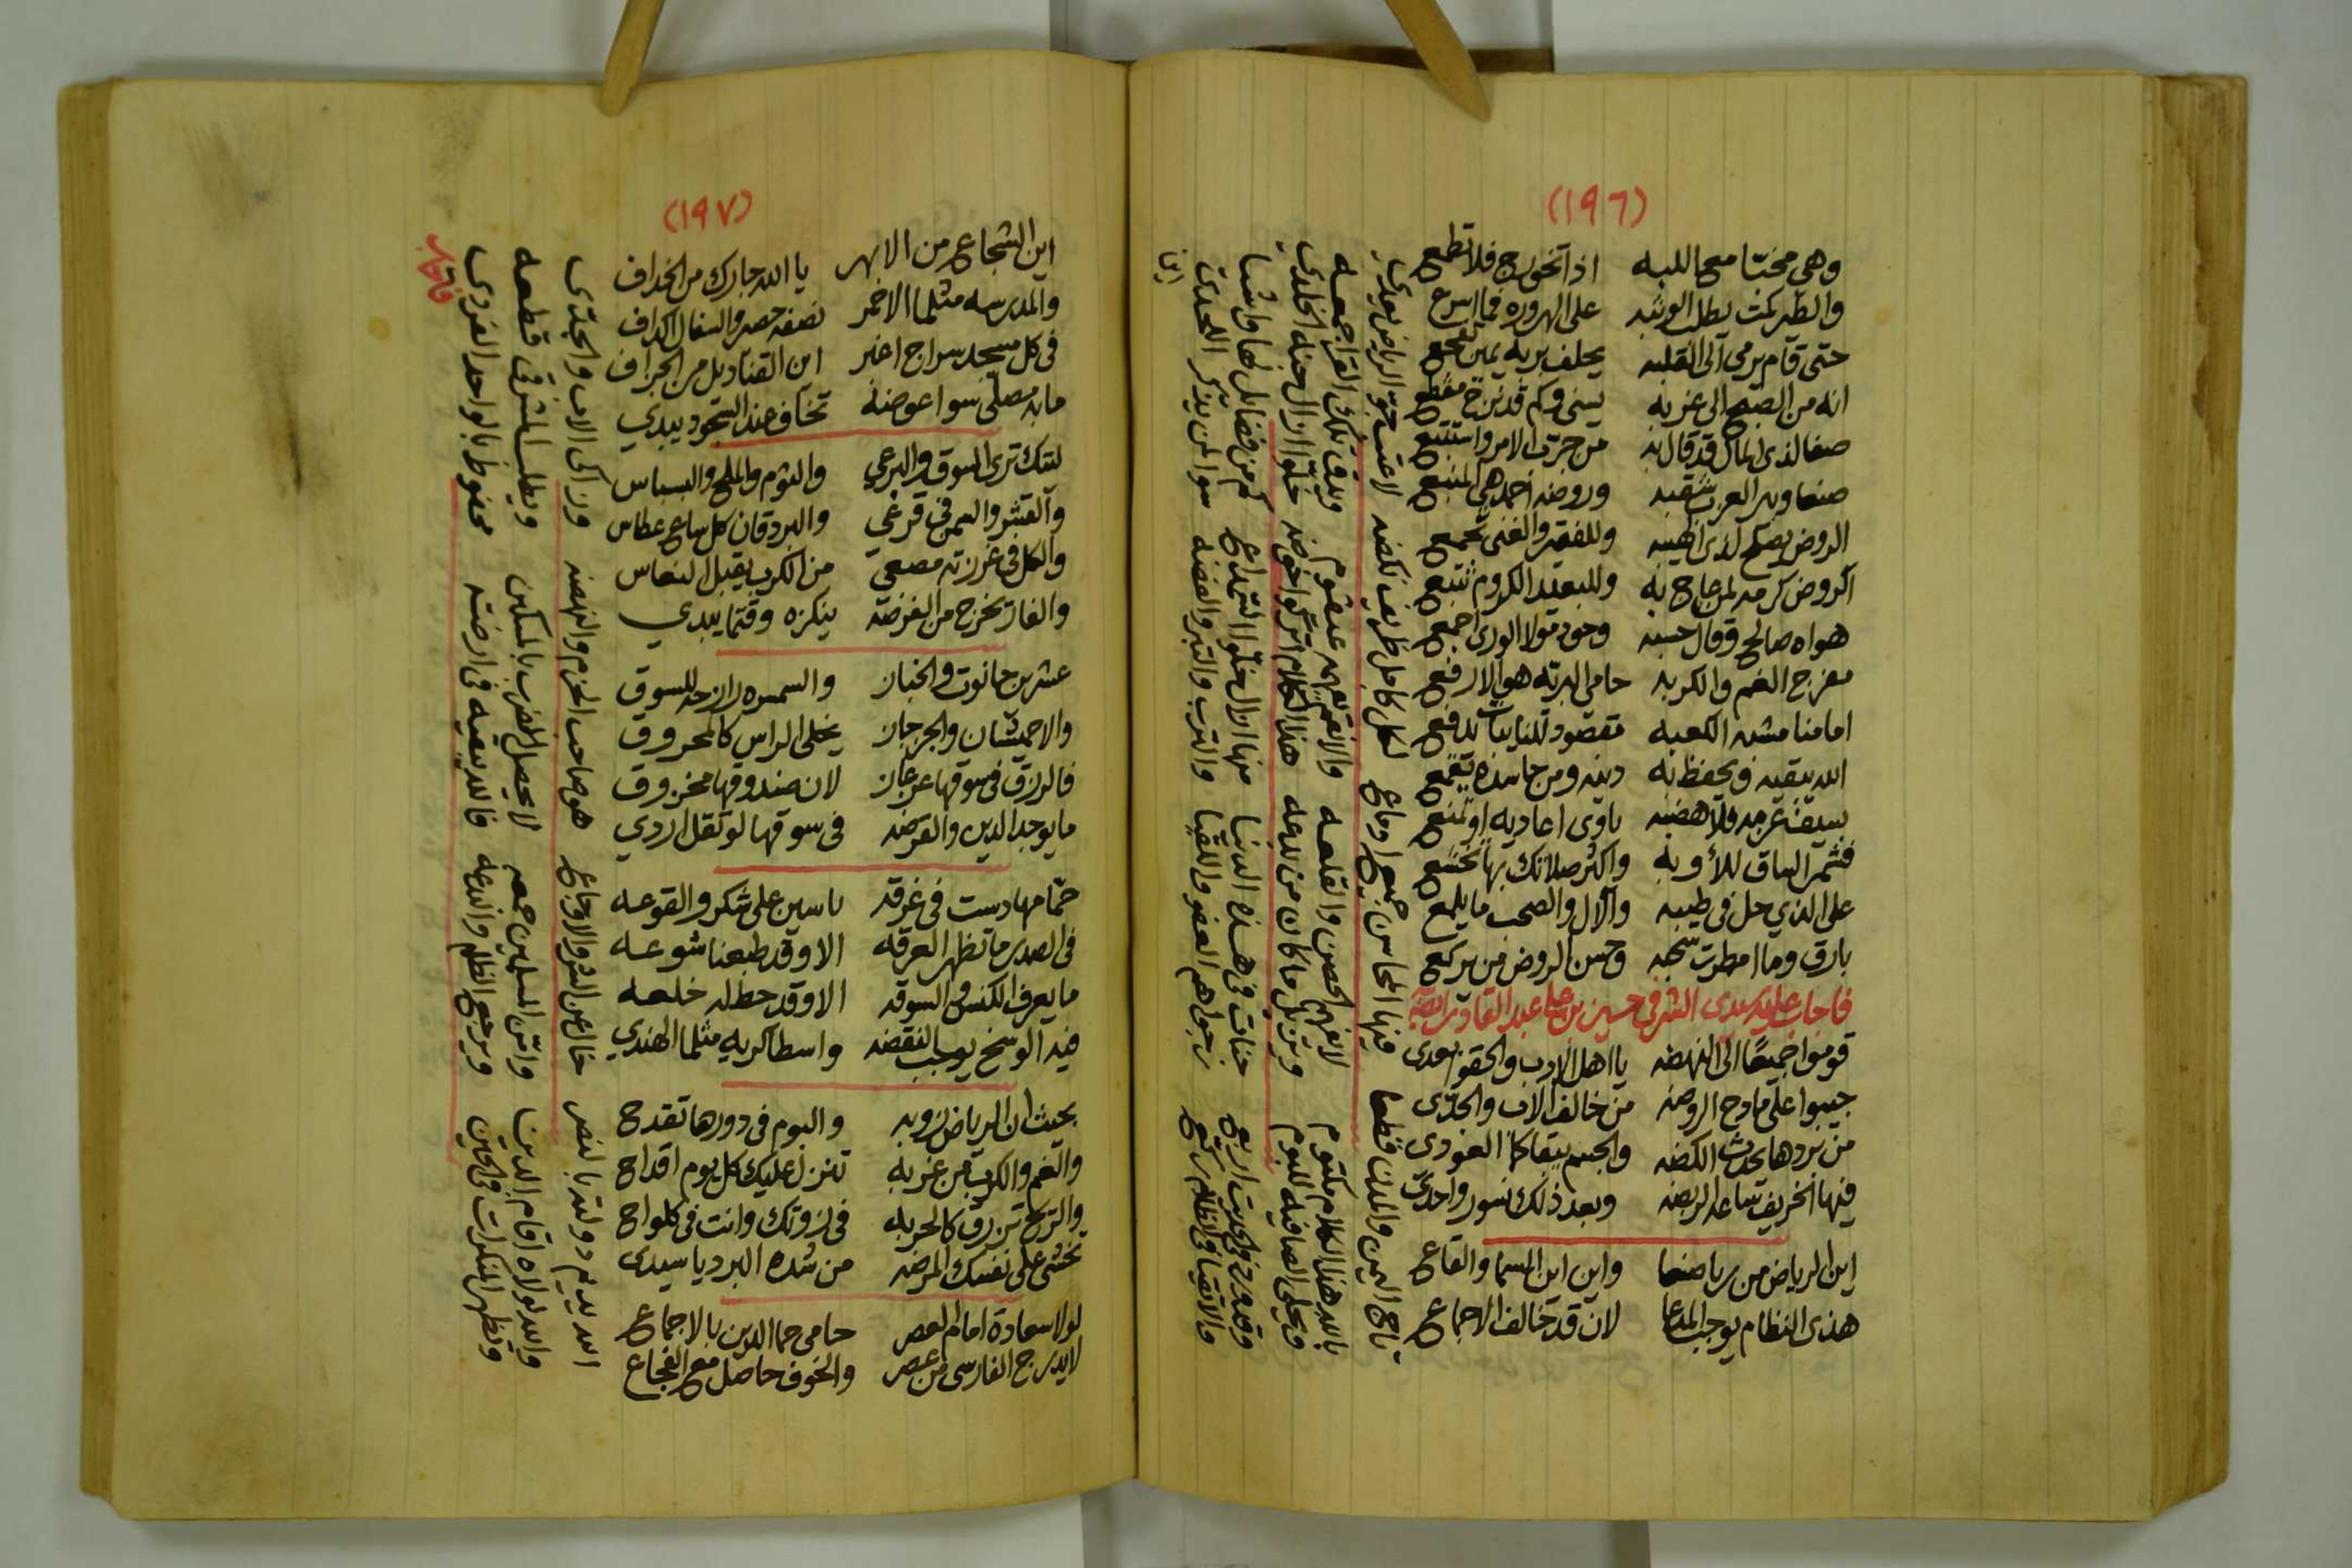 (١٩٦)
وهي مخبّا مع اللبه اذا تخرج فلا تطمع
والطير كمت يطلب الوشبه على الهروره فما اسرع
حتى قام يرمى الى القلبه يحلف بربه يمين
انه من الصبح الى غربه
صفا لذى المال قد قال به من جرّب الامر واستتبع
صنعا وبير العزب وروضة احمد هي المنبع
الروض يصلح وللفقير والغنى تجمع
الروض كرمه لمن جاع به وللبعيد الكروم تتبع
هواه صالح وقال حسبه وجود مولا الورى اجمع
مفرج الغم والكربه حامى البريّه هو الارفع
امامنا مشبه الكعبه مقصود للنايبات يدفع
الله يبقيه ويحفظ به دينه ومن حاسده يقمع
بسيف عزمه فلا هضبه ياوى اعاديه او تمنع
فشمر الساق للأوبه واكثر صلاتك بها تخشع
على الذي حل في طيبه والآل والصحب ما يلمع
بارق وما امطرت سحبه وحسن الروض من يركع
فاجاب عليه سيدى الشرفي حسين بن علي عبد القادر
قوموا جميعًا الى النهضه يا اهل الادب والحقوا بعدى
جيبوا على مادح الروضه من خالف الاب والجدّى
من بردها يحدث الكضه والجسم يبقا كما العودى
فيها الخريف ساعة الربضه وبعد ذلك نسور واحدى
اين الرياض من رياضنا واين اين السما والقاع
هذى النظام يوجب المدعا لان قد خالف الاجماع
تاج اليمن والمدن قطعا فيها المحاسن جميع اوماع
لكل كامل ظريف نكضه لا عتب جوّ الرياض بعدى
بالله هذا الكلام مكتوم لا يفهمه الحصن والقلعه
والانهم عنقوم وبلق تلك القرا جمعه
ويحلى الصافيه للبوم وينزيل ما كان من بدعه
هذا الكلام اتركوا خوضه خلّوا ازال جنة الخلدى
وقد ورد في الحديث اربع جنات في هذه الدنيا
منها ازال خلّوا التمداع كم من فضايل لها واشيا
والاتقيا في الظلام ركع نرجوا هم العفو واللقيا
والترب والتبر والفضه سوا لمن يذكر اللحدى
اين
(١٩٧)
اين الشجاع من الابهر يا الله جارك من الخداف
والمدرسه مثلما الاخمر نصفه حصر والسفال اكداف
في كل مسجد سراج اغبر اين القناديل من الجراف
ما به مصلّى سوا عوضه تخاف عند السجود يبدي
ليتك ترى السوق والبرعي والثوم والملح والبسباس
والقشر والسمن في قرعي والبردقان كل ساع عطاس
والكل في غرزته مصعي من الكرب يقبل النعاس
والفار يخرج من الغرضه ينكزه وقتما يبدي
عشرين حانوت والخباز والسمسره لازحه للسوق
والاحميشان والجرجان يخلى الراس كالمحروق
فالرزق في سوقها عرجان لان صندوقها مخزوق
ما يوجد الدين والقرضه في سوقها لو تقل اردي
حمّامها دست في غرقه ياسين على شكر والقوعه
في الصدر ما تظهر العرقه الا وقد طبعنا شوعه
ما يعرف الكنس والسوقه الا وقد حط له خلعه
فيه الوسخ يوجب النقضه واسطا كريه مثلما الهندي
بحيث ان الرياض زوبه والبوم في دورها تقدح
والغم والكرب من غربه تنزل عليك كل يوم اقداح
والريح تزرق كالحربه في زوتك وانت في كلواح
تخشى على نفسك المرضه من شده البرد يا سيدى
لولا سعادة امام العصر حامى حما الدين بالاجماع
لا يدرج الفارسى من عصر والخوف حاصل مع الفجاع
الله يديم دولته بالنصر خال عن الشر والاوجاع
هو صاحب الحزم والنهضه وزاكى الاب والجدّى
والله لولاه اقام الدين وامّن المسلمين جمعه
لا يحصل الضرب بالسكين ويطلب المشرقى قطعه
وتطهر المنكرات في الحين ويرجع الظلم والبدعه
فالله يبقيه في ارضه محفوظ بالواحد الفردى
فاجاب